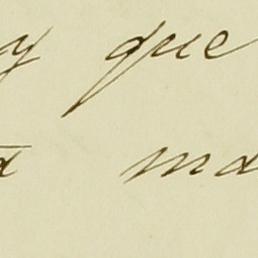 y que
a ma